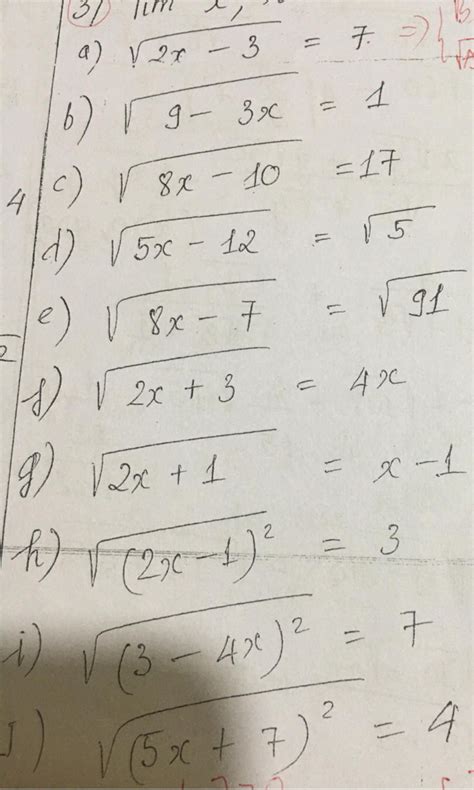 3) Tìm x,
a) √(2x - 3) = 7 =>
b) √(9 - 3x) = 1
c) √(8x - 10) = 17
4
d) √(5x - 12) = √5
e) √(8x - 7) = √91
f) √(2x + 3) = 4x
g) √(2x + 1) = x - 1
h) √((2x - 1)²) = 3
i) √((3 - 4x)²) = 7
J) √((5x + 7)²) = 4